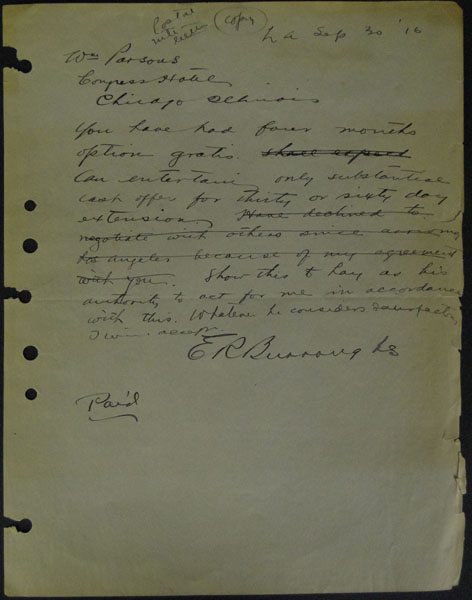 Postal
nite
letter
(copy)
LA Sep 30 '16
Wm Parsons
Congress Hotel,
Chicago Illinois
You have had four months
option gratis. shall expect
Can entertain only substantial
cash offer for thirty or sixty day
extension. Have declined to
negotiate with others since arriving
Los Angeles because of my agreement
with you. Show this to Hay as his
authority to act for me in accordance
with this. Whatever he considers satisfactory
I will accept.
E R Burroughs
Paid